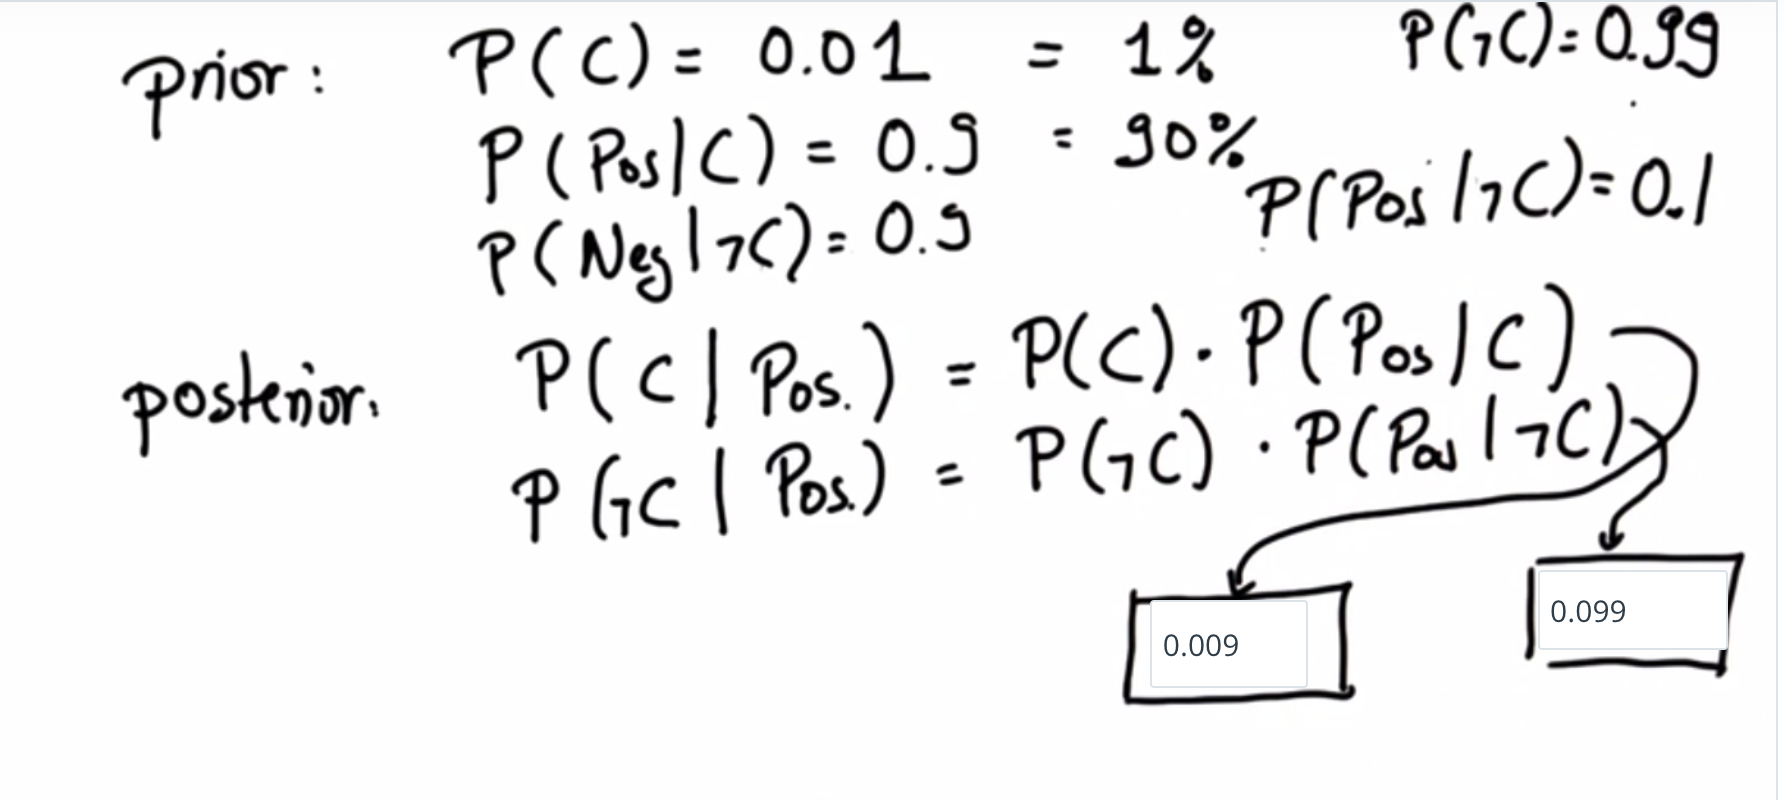 prior: P(C) = 0.01 = 1% P(¬C) = 0.99
P(Pos|C) = 0.9 = 90%
P(Pos|¬C) = 0.1
P(Neg|¬C) = 0.9
posterior: P(C|Pos.) = P(C) · P(Pos|C)
P(¬C|Pos.) = P(¬C) · P(Pos|¬C)
0.009 0.099